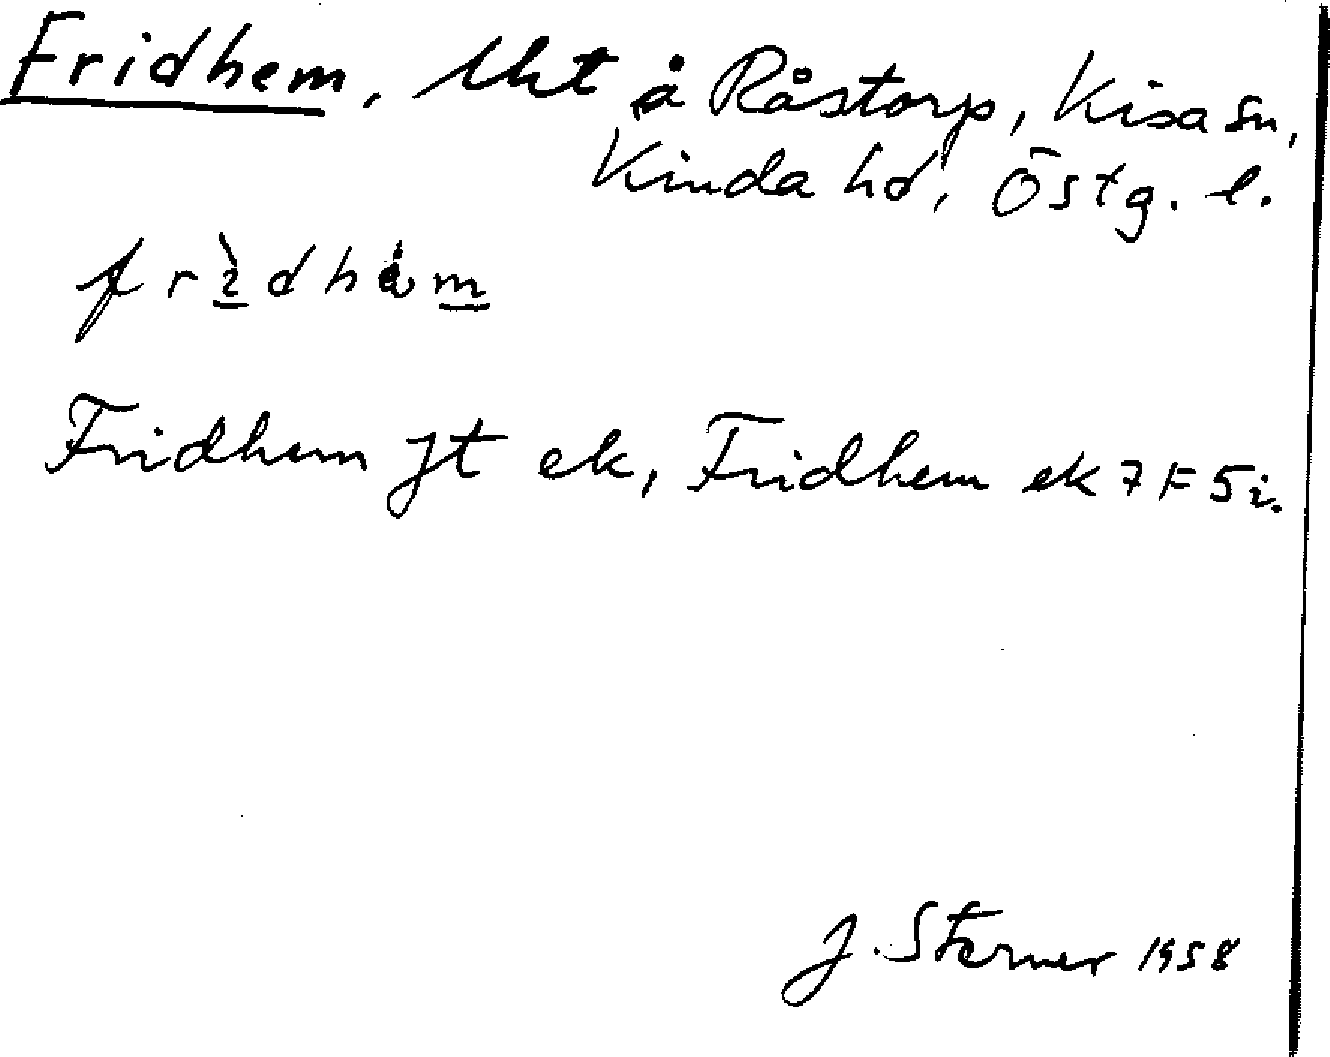 Fridhem, lht å Råstorp, Kisa sn,
Kinda hd, Östg. l.
Fridhem Jt ek, Fridhem ek 7F5i.
J. Sterner 1958